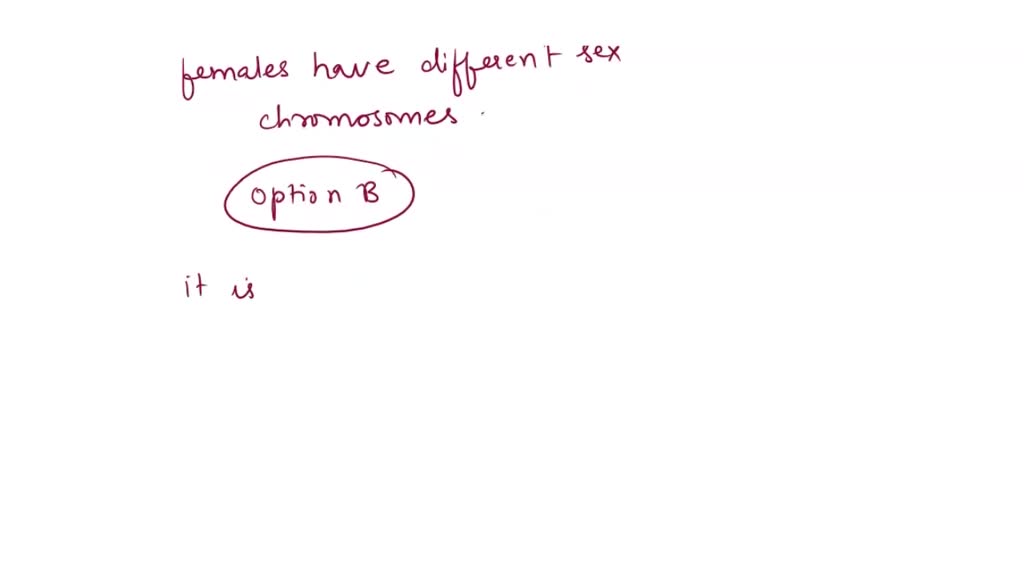 females have different sex
chromosomes .
option B
it is